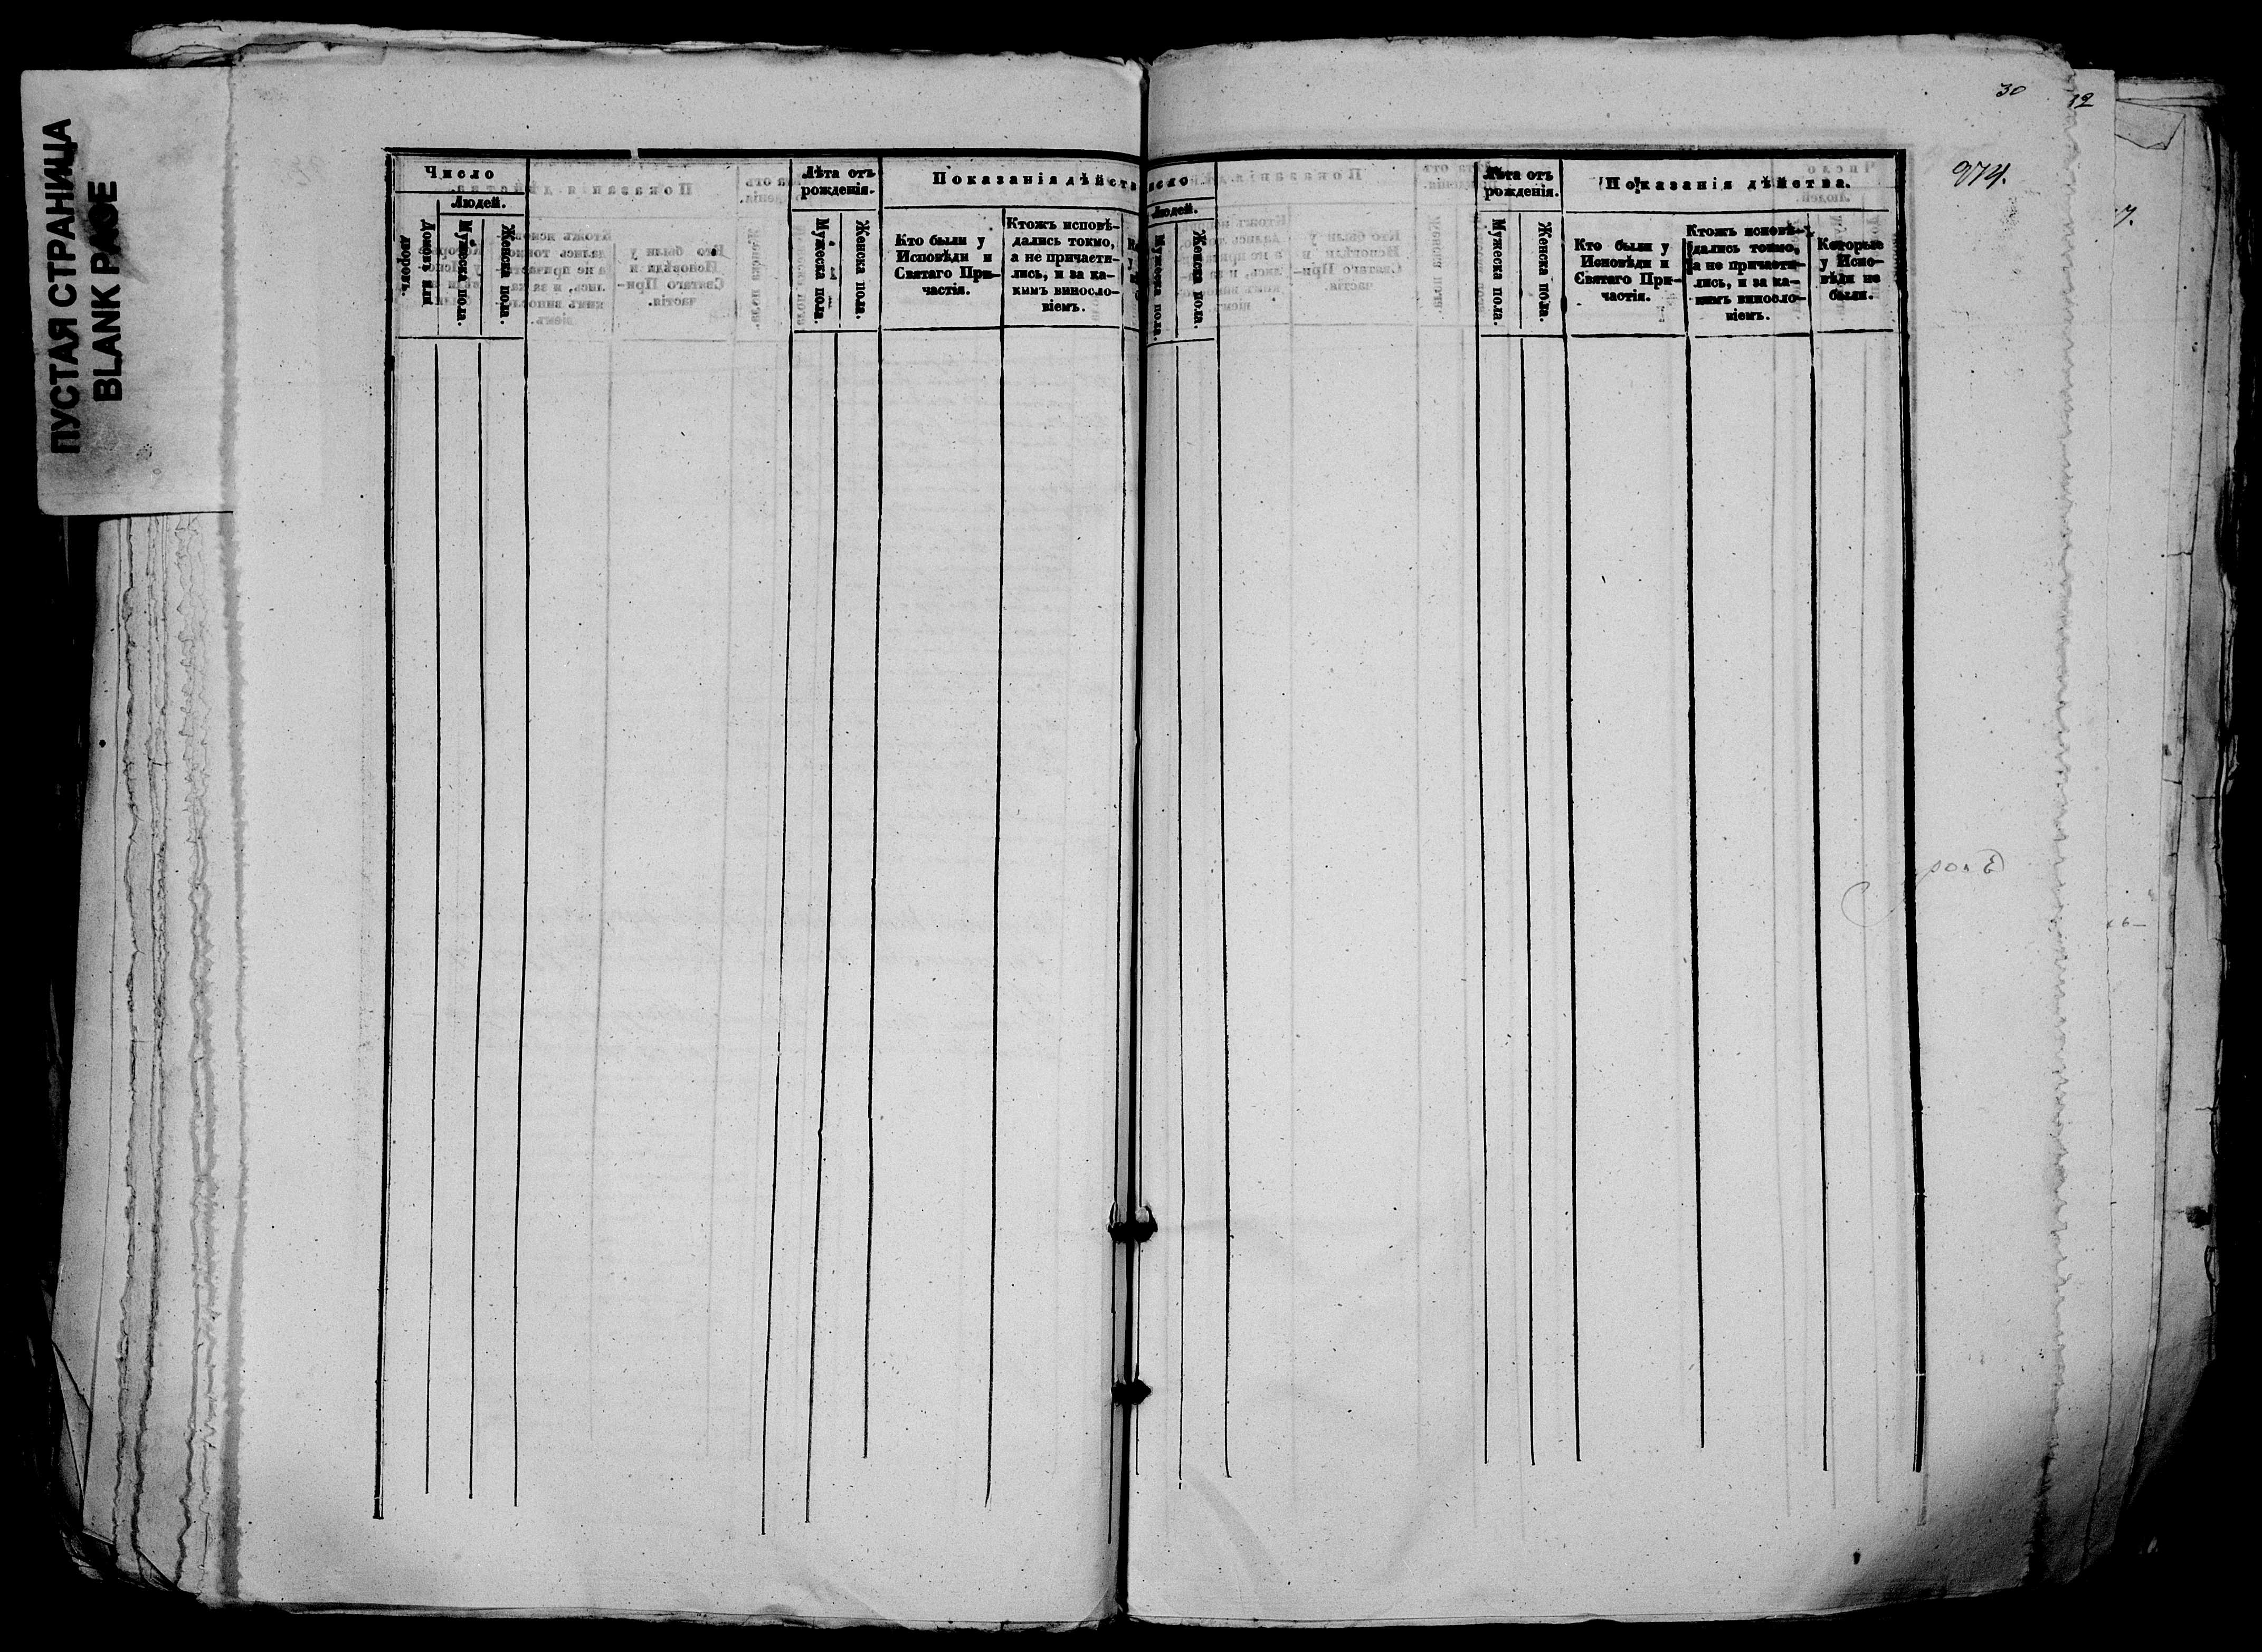 ПУСТАЯ СТРАНИЦА
BLANK PAGE
Число
Людей.
Домовъ или
дворовъ.
Мужеска пола.
Женска пола.
Лѣта отъ
рожденія.
Мужеска пола.
Женска пола.
Показанія дѣйста
Кто были у
Исповѣди и
Святаго При-
частія.
Ктожъ исповѣ-
дались токмо,
а не причасти-
лись, и за ка-
кимъ виносло-
віемъ.
30
12
974.
7.
исло
Людей.
Мужеска пола.
Женска пола.
Лѣта отъ
рожденія.
Мужеска пола.
Женска пола.
Показанія дѣйства.
Кто были у
Исповѣди и
Святаго При-
частія.
Ктожъ исповѣ-
дались токмо,
а не причасти-
лись, и за ка-
кимъ виносло-
віемъ.
Которые
у Испо-
вѣди не
были.